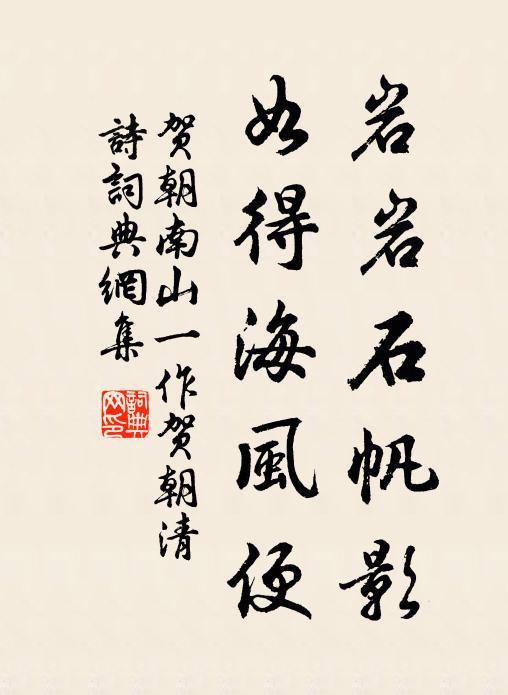 岩岩石帆影
如得海風便
贺朝南山一作贺朝清
詩詞典網集
詞典网印